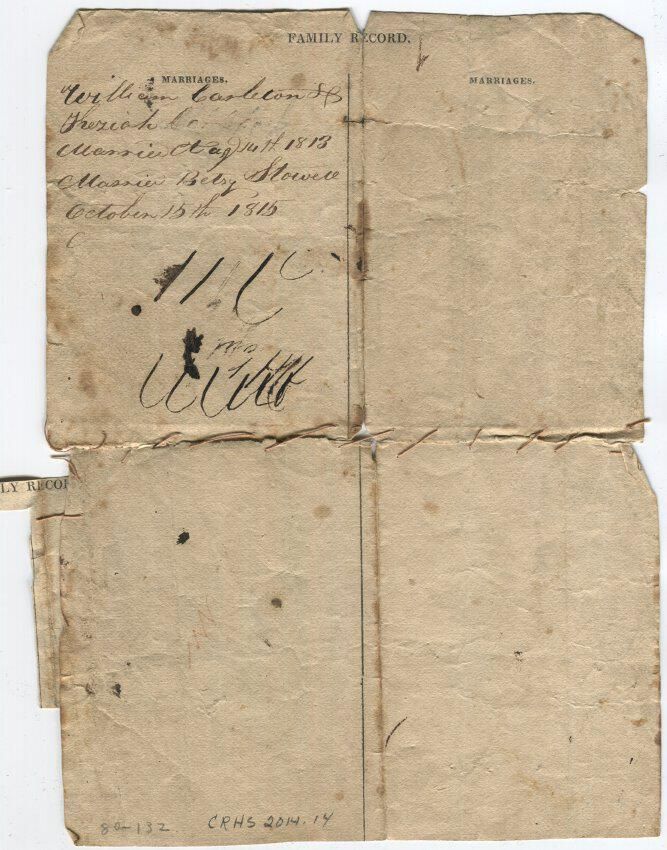 FAMILY RECORD.
MARRIAGES.
MARRIAGES.
William Carleton &
Keziah
Married Aug 14th 1813
Married Betsy Stowell
October 15th 1815
LY RECOR
80-132
CRHS 2014.14